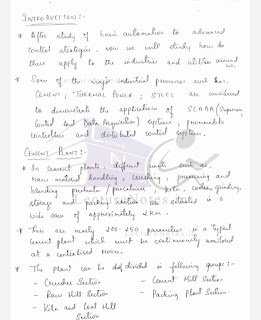 INTRODUCTION:-
* After study of basic automation to advanced
control strategies. now we will study how to
these apply to the industries and utilities around us.
* Some of the major industrial processes such as,
CEMENT, THERMAL POWER, STEEL are considered
to demonstrate the applications of SCADA (Supervisory
Control and Data Acquisition) systems, programmable
controllers and distributed control system.
CEMENT PLANT:-
* In cement plants, different units such as,
raw material handling, crushing, processing and
blending preheater / kiln, cooler, grinding,
storage and packing section is situated in a
wide area of approximately 2 km.
* There are nearly 200-250 parameters in a typical
cement plant which must be continuously monitored
at a centralised room.
* The plant can be divided in following groups:-
- Crusher Section
- Cement Mill Section
- Raw Mill Section
- Packing Plant Section.
- Kiln and Coal Mill
Section